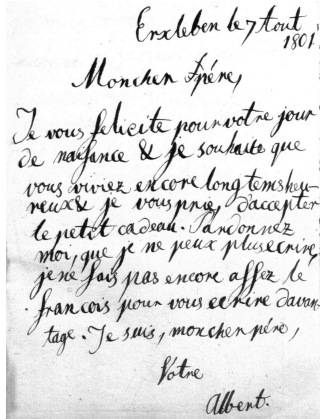 Erxleben le 7 Aout
1801
Monchen Pére,
Je vous felicite pour votre jour
de naissance & je souhaite que
vous viviez encore longtems heu-
reux & je vous prie, d'accepter
le petit cadeau. Pardonnez
moi, que je ne peux plus ecrire,
je ne sais pas encore assez le
francois pour vous ecrire davan-
tage. Je suis, monchen pére,
Votre
Albert.